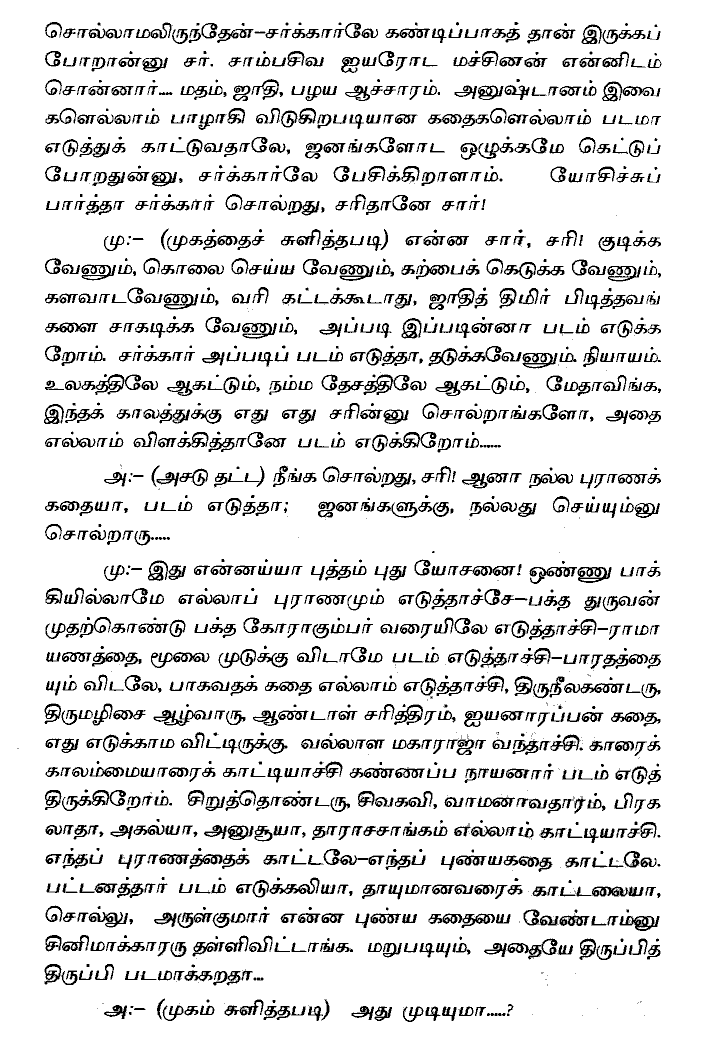 சொல்லாமலிருந்தேன்–சர்க்கார்லே கண்டிப்பாகத் தான் இருக்கப்
போறான்னு சர். சாம்பசிவ ஐயரோட மச்சினன் என்னிடம்
சொன்னார்.... மதம், ஜாதி, பழய ஆச்சாரம். அனுஷ்டானம் இவை
களெல்லாம் பாழாகி விடுகிறபடியான கதைகளெல்லாம் படமா
எடுத்துக் காட்டுவதாலே, ஜனங்களோட ஒழுக்கமே கெட்டுப்
போறதுன்னு, சர்க்கார்லே பேசிக்கிறாளாம். யோசிச்சுப்
பார்த்தா சர்க்கார் சொல்றது, சரிதானே சார்!
மு:– (முகத்தைச் சுளித்தபடி) என்ன சார், சரி! குடிக்க
வேணும், கொலை செய்ய வேணும், கற்பைக் கெடுக்க வேணும்,
களவாடவேணும், வரி கட்டக்கூடாது, ஜாதித் திமிர் பிடித்தவங்
களை சாகடிக்க வேணும், அப்படி இப்படின்னா படம் எடுக்க
றோம். சர்க்கார் அப்படிப் படம் எடுத்தா, தடுக்கவேணும். நியாயம்.
உலகத்திலே ஆகட்டும், நம்ம தேசத்திலே ஆகட்டும், மேதாவிங்க,
இந்தக் காலத்துக்கு எது எது சரின்னு சொல்றாங்களோ, அதை
எல்லாம் விளக்கித்தானே படம் எடுக்கிறோம்......
அ:– (அசடு தட்ட) நீங்க சொல்றது, சரி! ஆனா நல்ல புராணக்
கதையா, படம் எடுத்தா; ஜனங்களுக்கு, நல்லது செய்யும்னு
சொல்றாரு.....
மு:– இது என்னய்யா புத்தம் புது யோசனை! ஒண்ணு பாக்
கியில்லாமே எல்லாப் புராணமும் எடுத்தாச்சே–பக்த துருவன்
முதற்கொண்டு பக்த கோராகும்பர் வரையிலே எடுத்தாச்சி–ராமா
யணத்தை, மூலை முடுக்கு விடாமே படம் எடுத்தாச்சி–பாரதத்தை
யும் விடலே, பாகவதக் கதை எல்லாம் எடுத்தாச்சி, திருநீலகண்டரு,
திருமழிசை ஆழ்வாரு, ஆண்டாள் சரித்திரம், ஐயனாரப்பன் கதை,
எது எடுக்காம விட்டிருக்கு. வல்லாள மகாராஜா வந்தாச்சி. காரைக்
காலம்மையாரைக் காட்டியாச்சி கண்ணப்ப நாயனார் படம் எடுத்
திருக்கிறோம். சிறுத்தொண்டரு, சிவகவி, வாமனாவதாரம், பிரக
லாதா, அகல்யா, அனுசூயா, தாராசசாங்கம் எல்லாம் காட்டியாச்சி.
எந்தப் புராணத்தைக் காட்டலே–எந்தப் புண்யகதை காட்டலே.
பட்டனத்தார் படம் எடுக்கலியா, தாயுமானவரைக் காட்டலையா,
சொல்லு, அருள்குமார் என்ன புண்ய கதையை வேண்டாம்னு
சினிமாக்காரரு தள்ளிவிட்டாங்க. மறுபடியும், அதையே திருப்பித்
திருப்பி படமாக்கறதா...
அ:– (முகம் சுளித்தபடி) அது முடியுமா.....?